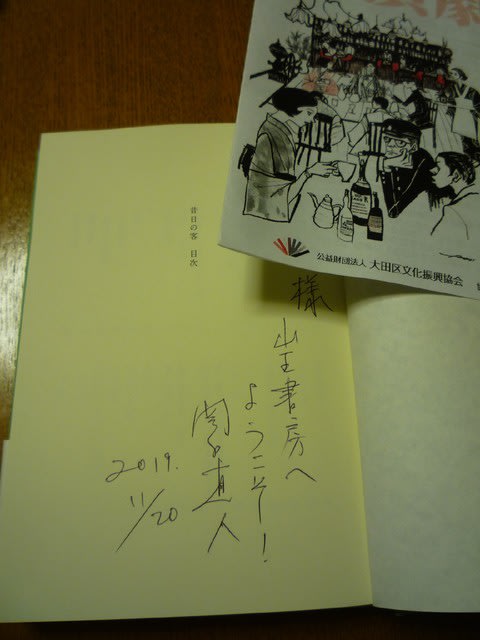 公益財団法人 大田区文化振興協会
昔日の客 目次
様
山王書房へ
ようこそー!
関口直人
2019.
11/20